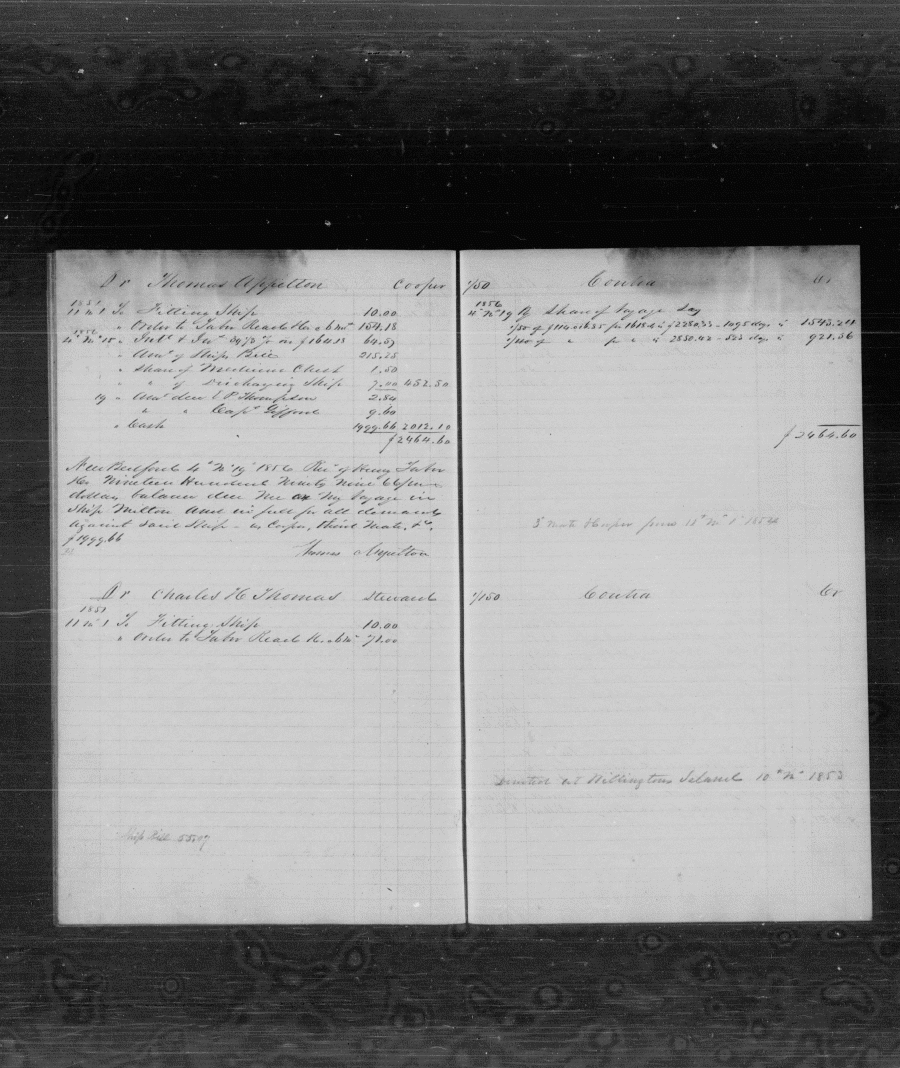 Dr Thomas Appelton Cooper
1851
11 mo 1 To Fitting Ship 10.00
" Order to Tabor Read & Co 154.18
1856
4 mo 15 " Intt & Ins on $164.18 64.59
" Amt of Ships Bill 215.25
" Share of Medicine Chest 1.50
" " of Discharging Ship 7.00 452.50
19 " Amt due E P Thompson 2.84
" " " Capt Gifford 9.60
" Cash 1999.66 2012.10
$2464.60
New Bedford 4th Mo 19 1856 Recd of Henry Tabor
& Co Nineteen Hundred Ninety Nine 66/100
dollars balance due me on my Voyage in
Ship Milton and in full for all demands
against said Ship - as Cooper, third Mate, &c.
$1999.66
Thomas Appelton
Dr Charles H Thomas Steward
1851
11 mo 1 To Fitting Ship 10.00
" Order to Tabor Read & Co 71.00
Ship Bill 55.97
1/50 Contra Cr
1856
4th Mo 19 By Share of Voyage Lay
1095 days is 1543.24
523 days is 921.36
$2464.60
3 mate & Cooper from 11th Mo 1st 1854
1/150 Contra Cr
Deserted at Wellingtons Island 10th Mo 1853